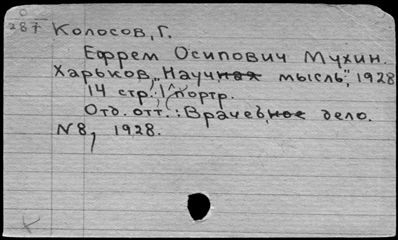 0
287 Колосов, Г.
Ефрем Осипович Мухин.
Харьков, „Научная мысль", 1928
14 стр., 1 портр.
Отд. отт.: Врачебное дело.
N8, 1928.